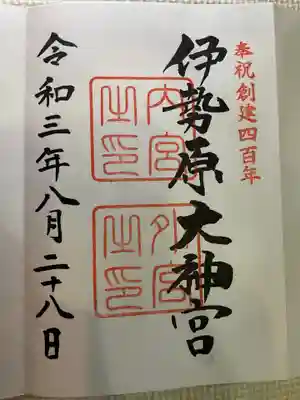 奉祝創建四百年
伊勢原大神宮
内宮之印
外宮之印
令和三年八月二十八日